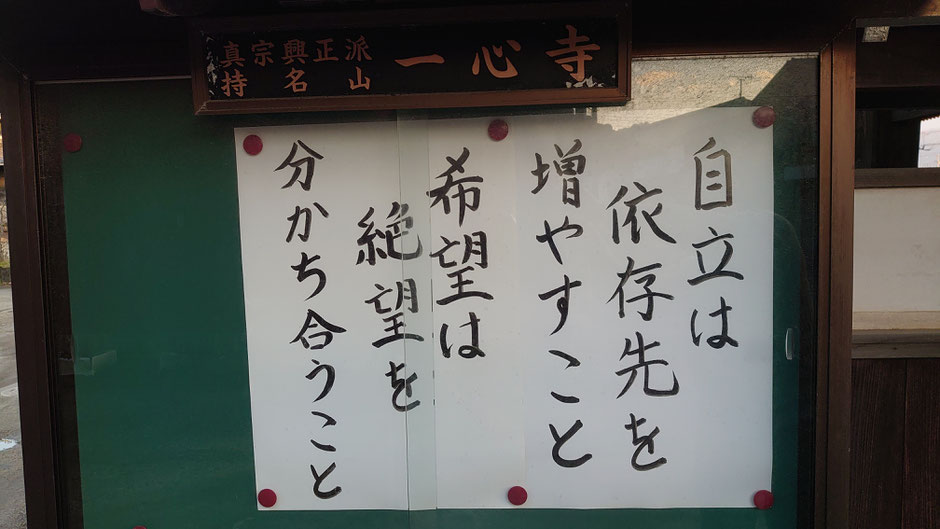 真宗興正派
持名山
一心寺
自立は
依存先を
増やすこと
希望は
絶望を
分かち合うこと